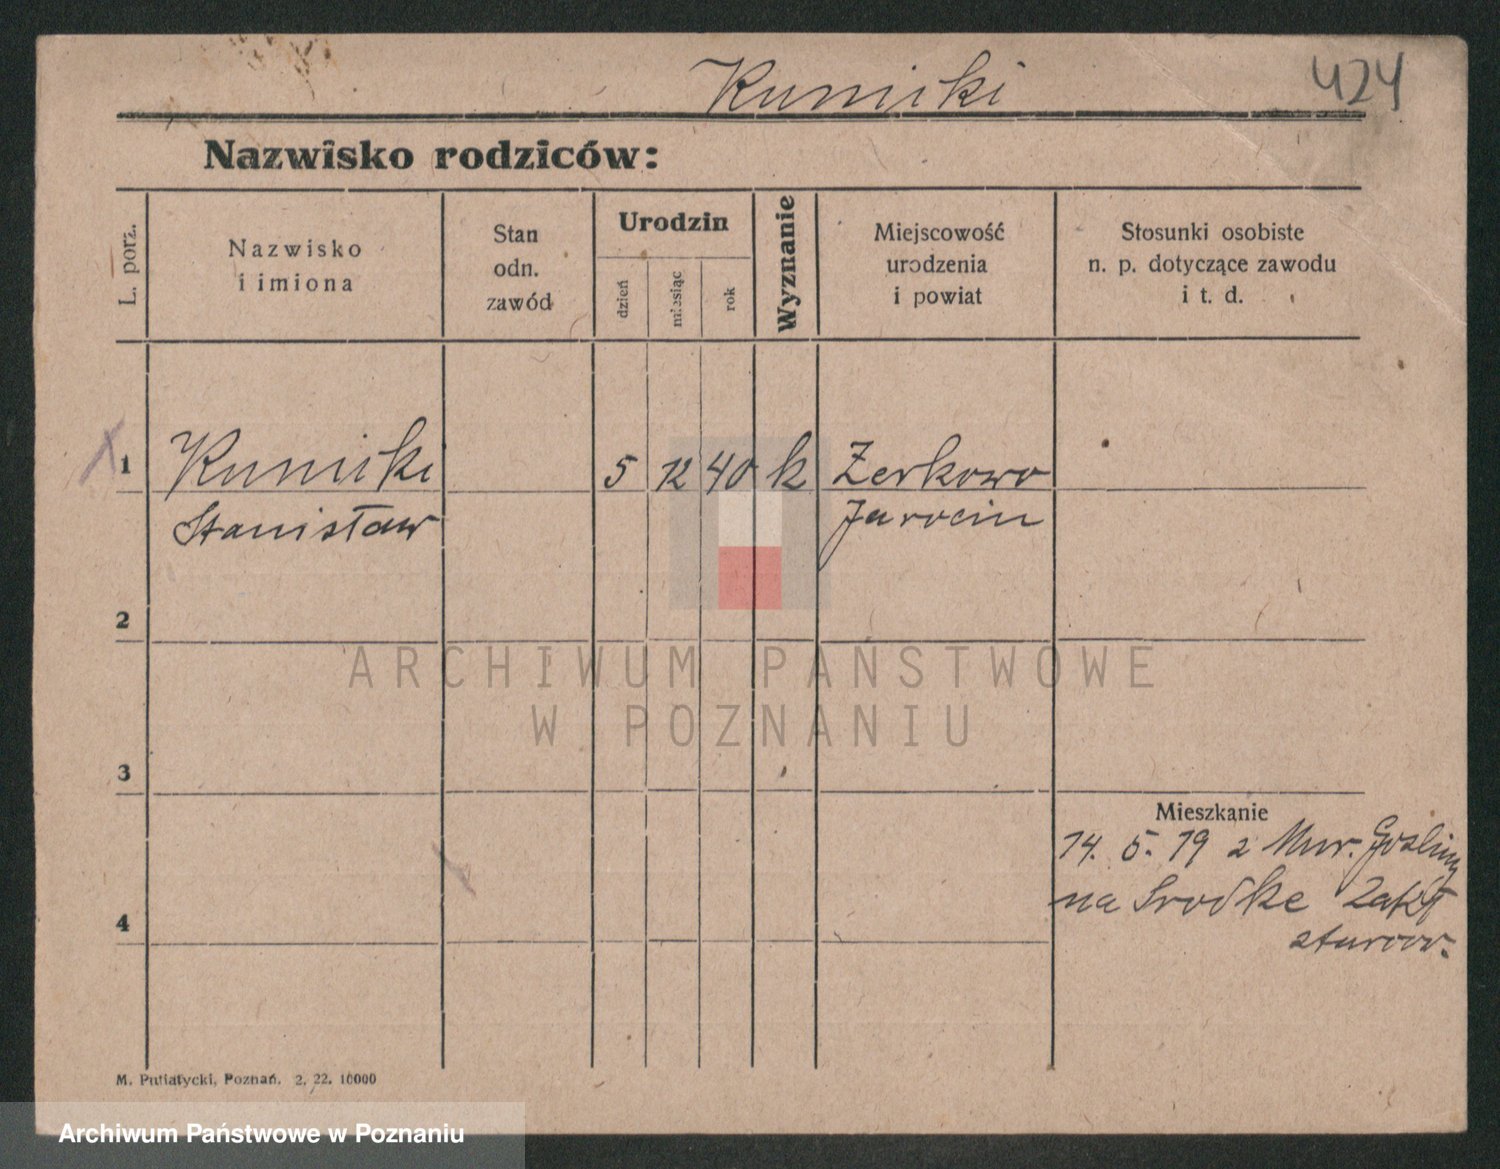 Kunicki
424
Nazwisko rodziców:
L. porz.
Nazwisko
i imiona
Stan
odn.
zawód
Urodzin
dzień
miesiąc
rok
Wyznanie
Miejscowość
urodzenia
i powiat
Stosunki osobiste
n. p. dotyczące zawodu
i t. d.
1 Kunicki 5 12 40 k Zerkowo
Stanisław Jarocin
2
ARCHIWUM PAŃSTWOWE
W POZNANIU
3
Mieszkanie
14. 5. 19 z Mur. Gosliny
na Srodke Zakł
starców.
4
M. Putiatycki, Poznań. 2. 22. 10000
Archiwum Państwowe w Poznaniu